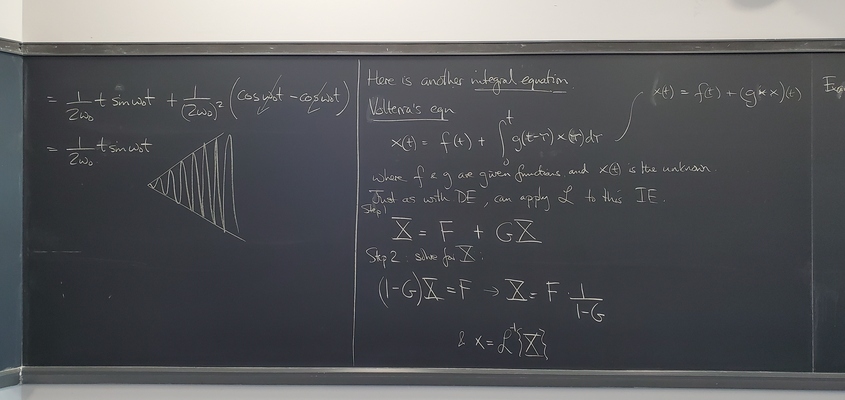 = 1/2ω₀ t sin ω₀t + 1/(2ω₀)² (cos ω₀t - cos ω₀t)
= 1/2ω₀ t sin ω₀t
Here is another integral equation.
Volterra's eqn
x(t) = f(t) + ∫₀ᵗ g(t-τ) x(τ) dτ
x(t) = f(t) + (g * x)(t)
where f & g are given functions and x(t) is the unknown.
Just as with DE, can apply ℒ to this IE.
Step 1
X = F + GX
Step 2: solve for X:
(1-G)X = F → X = F · 1/1-G
& x = ℒ⁻¹{X}